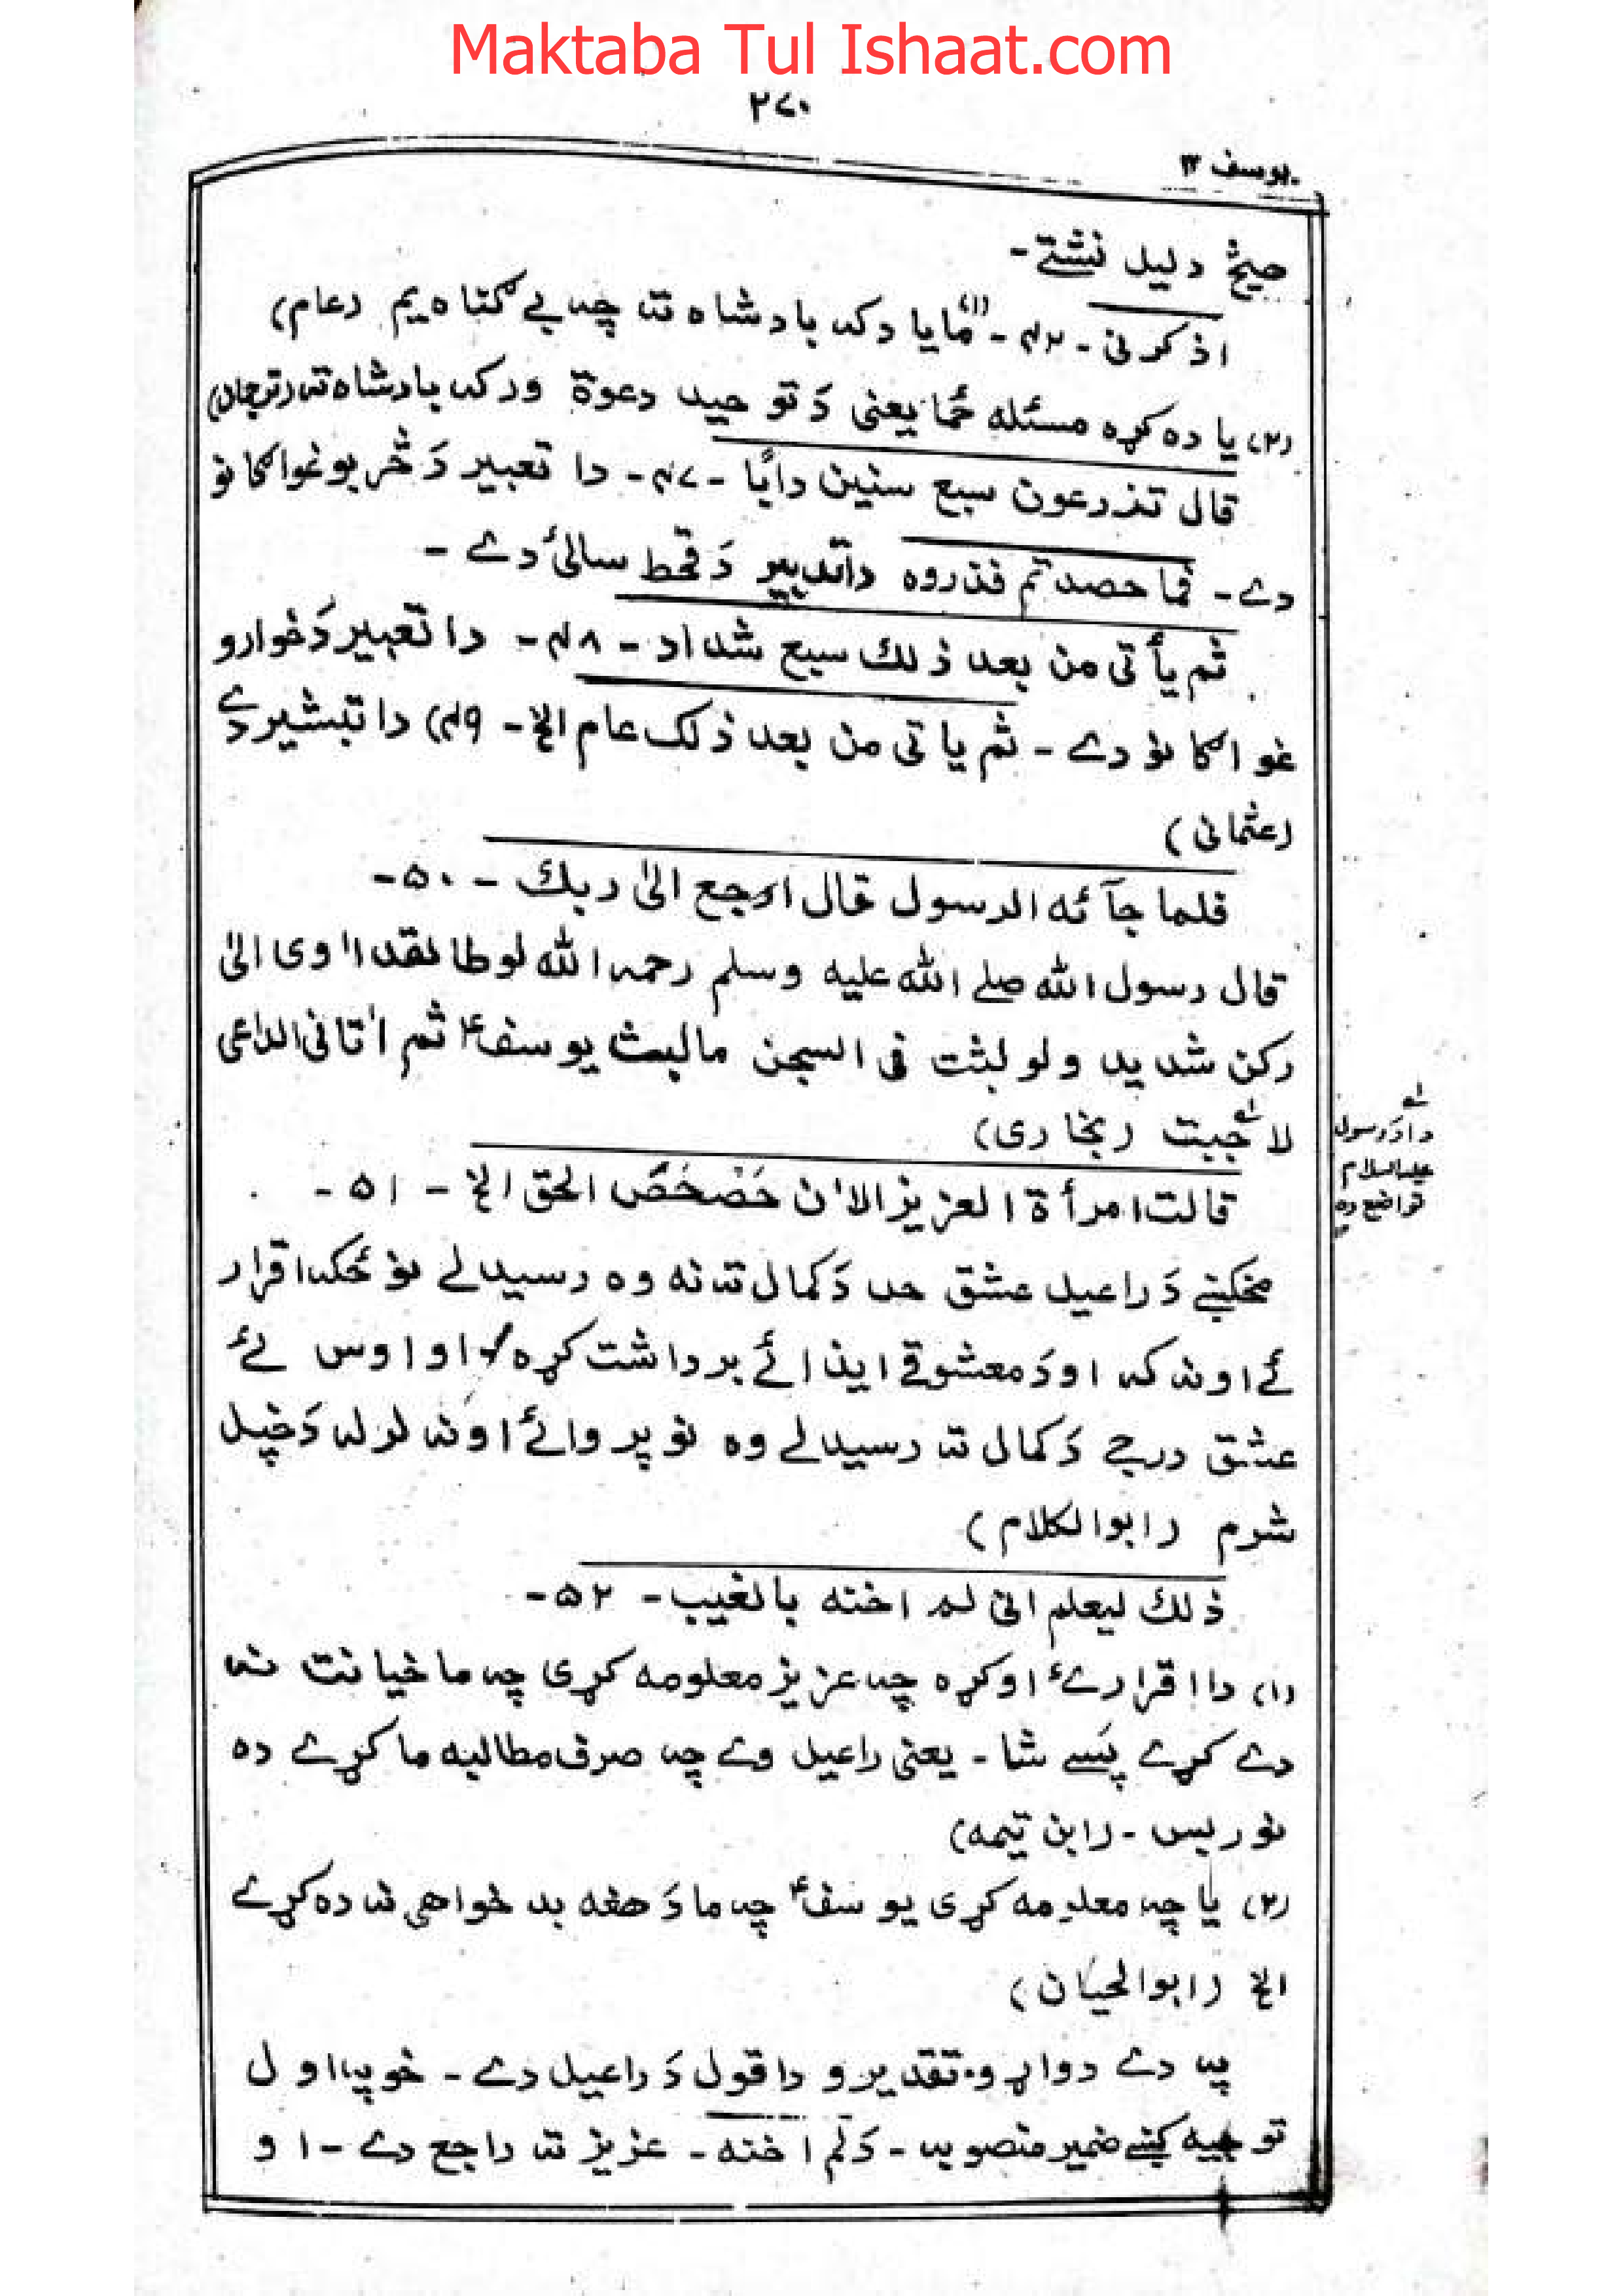 Maktaba Tul Ishaat.com
۲۷۰
یوسف ۱۲
هیڅ دلیل نشتے۔
اذکرنی۔ ۴۲۔ (۱) څما یاد کہ بادشاه تہ چہ بے گناه یم (عام)
(۲) یا ده کړه مسئله څما یعنی دَ توحید دعوة ورکہ بادشاه تہ (ترجمان)
قال تزرعون سبع سنین دابًا۔ ۴۷۔ دا تعبیر دَ څربو غواګانو
دے۔ فما حصدتم فذروه دا تدبیر دَ قحط سالئ دے۔
ثم یأتی من بعد ذلك سبع شداد۔ ۴۸۔ دا تعبیر دَ خوارو
غواګانو دے۔ ثم یاتی من بعد ذلک عام الخ۔ ۴۹) دا تبشیر دے
(عثمانی)
فلما جآئه الرسول قال ارجع الیٰ ربك۔ ۵۰۔
قال رسول الله صلے الله علیه وسلم رحمہ الله لوطا لقد اٰوی الیٰ
رکن شدید ولو لبثت فی السجن ما لبث یوسفؑ ثم اتانی الداعی
لاجبت (بخاری)
دا دَ رسول
علیہ السلام
تواضع ده
قالت امرأة العزیز الاٰن حَصْحَصَ الحق الخ۔ ۵۱۔
مخکښے دَ راعیل عشق حد دَ کمال تہ نه وه رسیدلے نو ځکہ اقرار
ئے اونہ کہ او دَ معشوقے ایذائے برداشت کړه او اوس ئے
عشق درجے دَ کمال تہ رسیدلے وه نو پروائے اونہ لرلہ دَ خپل
شرم (ابوالکلام)
ذلك لیعلم انی لم اخنه بالغیب۔ ۵۲۔
(۱) دا اقرار ئے اوکړه چہ عزیز معلومه کړی چہ ما خیانت نہ
دے کړے پسے شا۔ یعنی راعیل وے چہ صرف مطالبه ما کړے ده
نور بس۔ (ابن تیمه)
(۲) یا چہ معلومه کړی یوسفؑ چہ ما دَ هغه بد خواهی نہ ده کړے
الخ (ابوالحیان)
پہ دے دواړو تقدیرو دا قول دَ راعیل دے۔ خو پہ اول
توجیه کښے ضمیر منصوب۔ دَ لم اخنه۔ عزیز تہ راجع دے۔ او